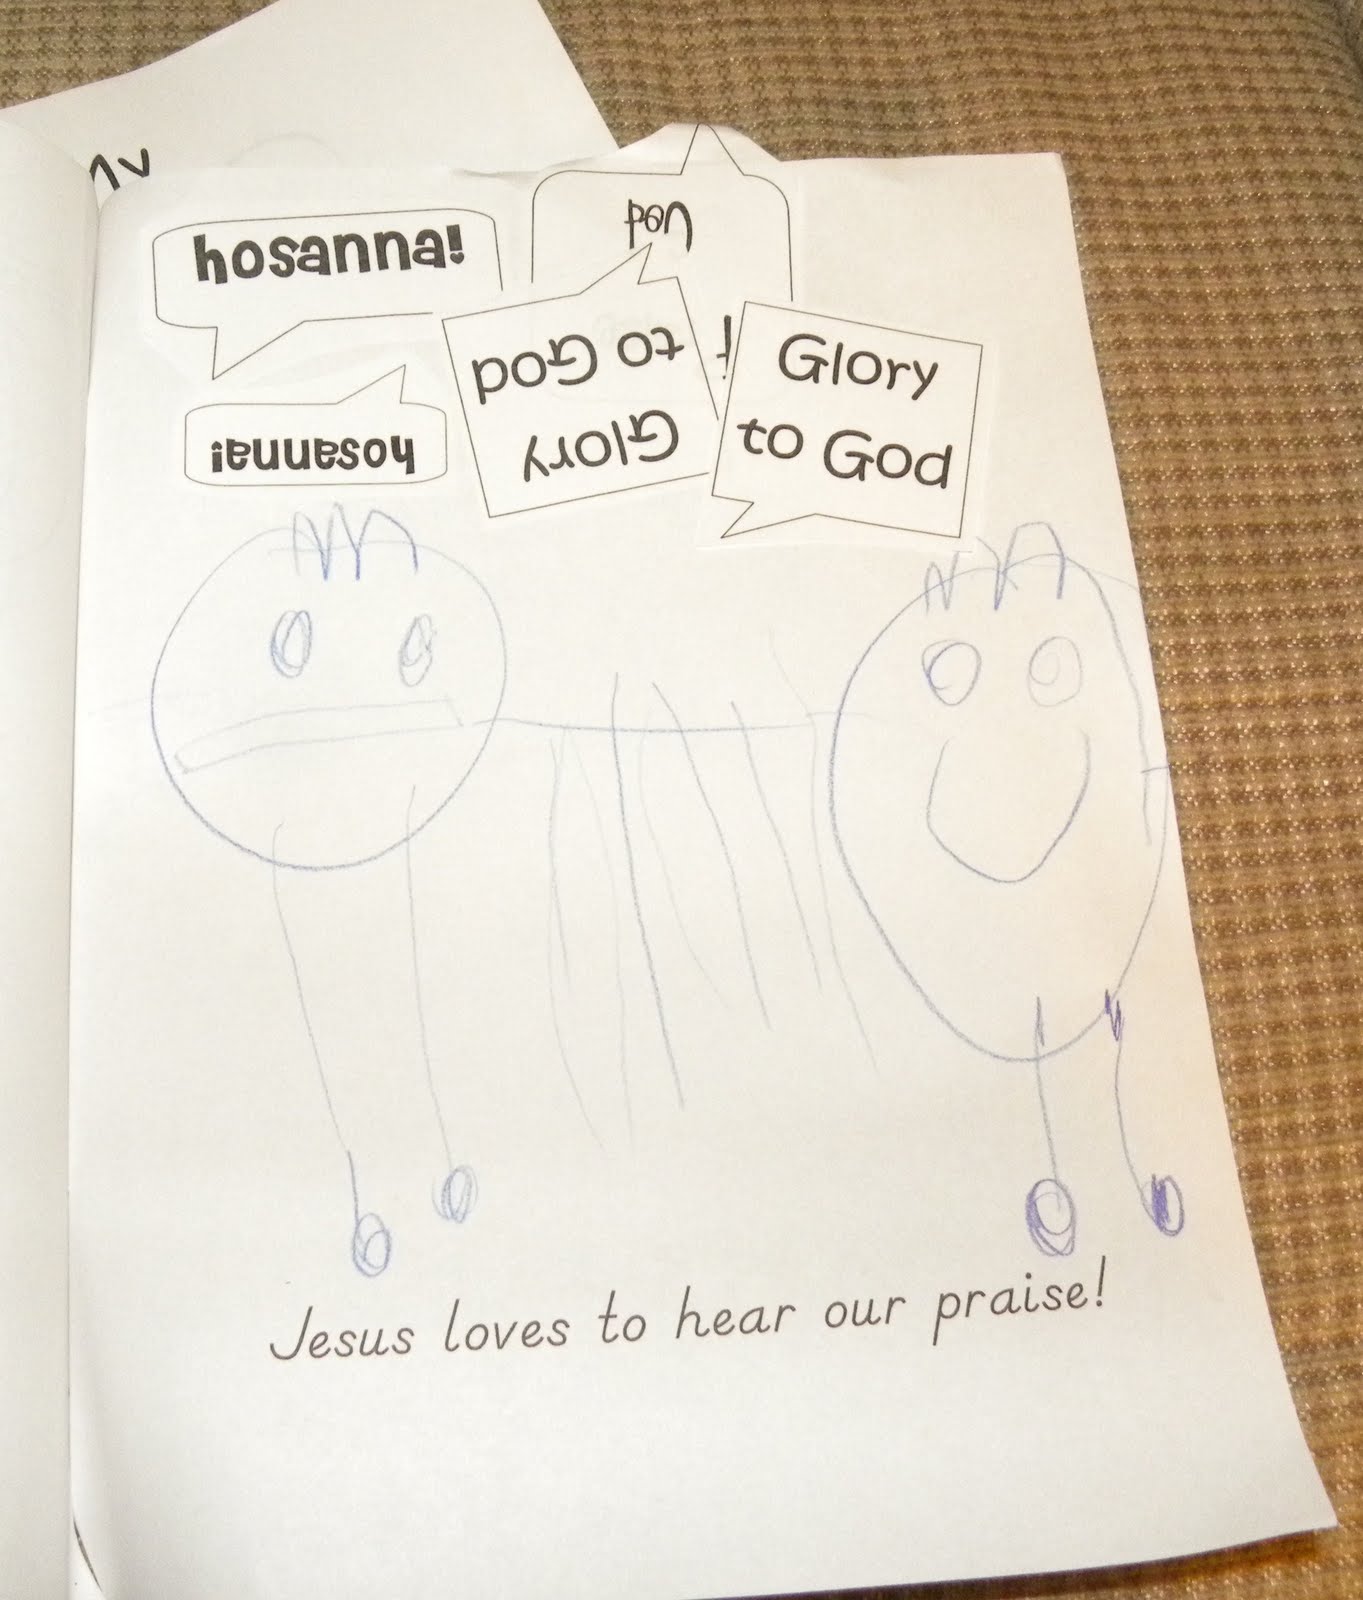 My
hosanna!
hosanna!
Glory
to God
Glory
to God
Jesus loves to hear our praise!